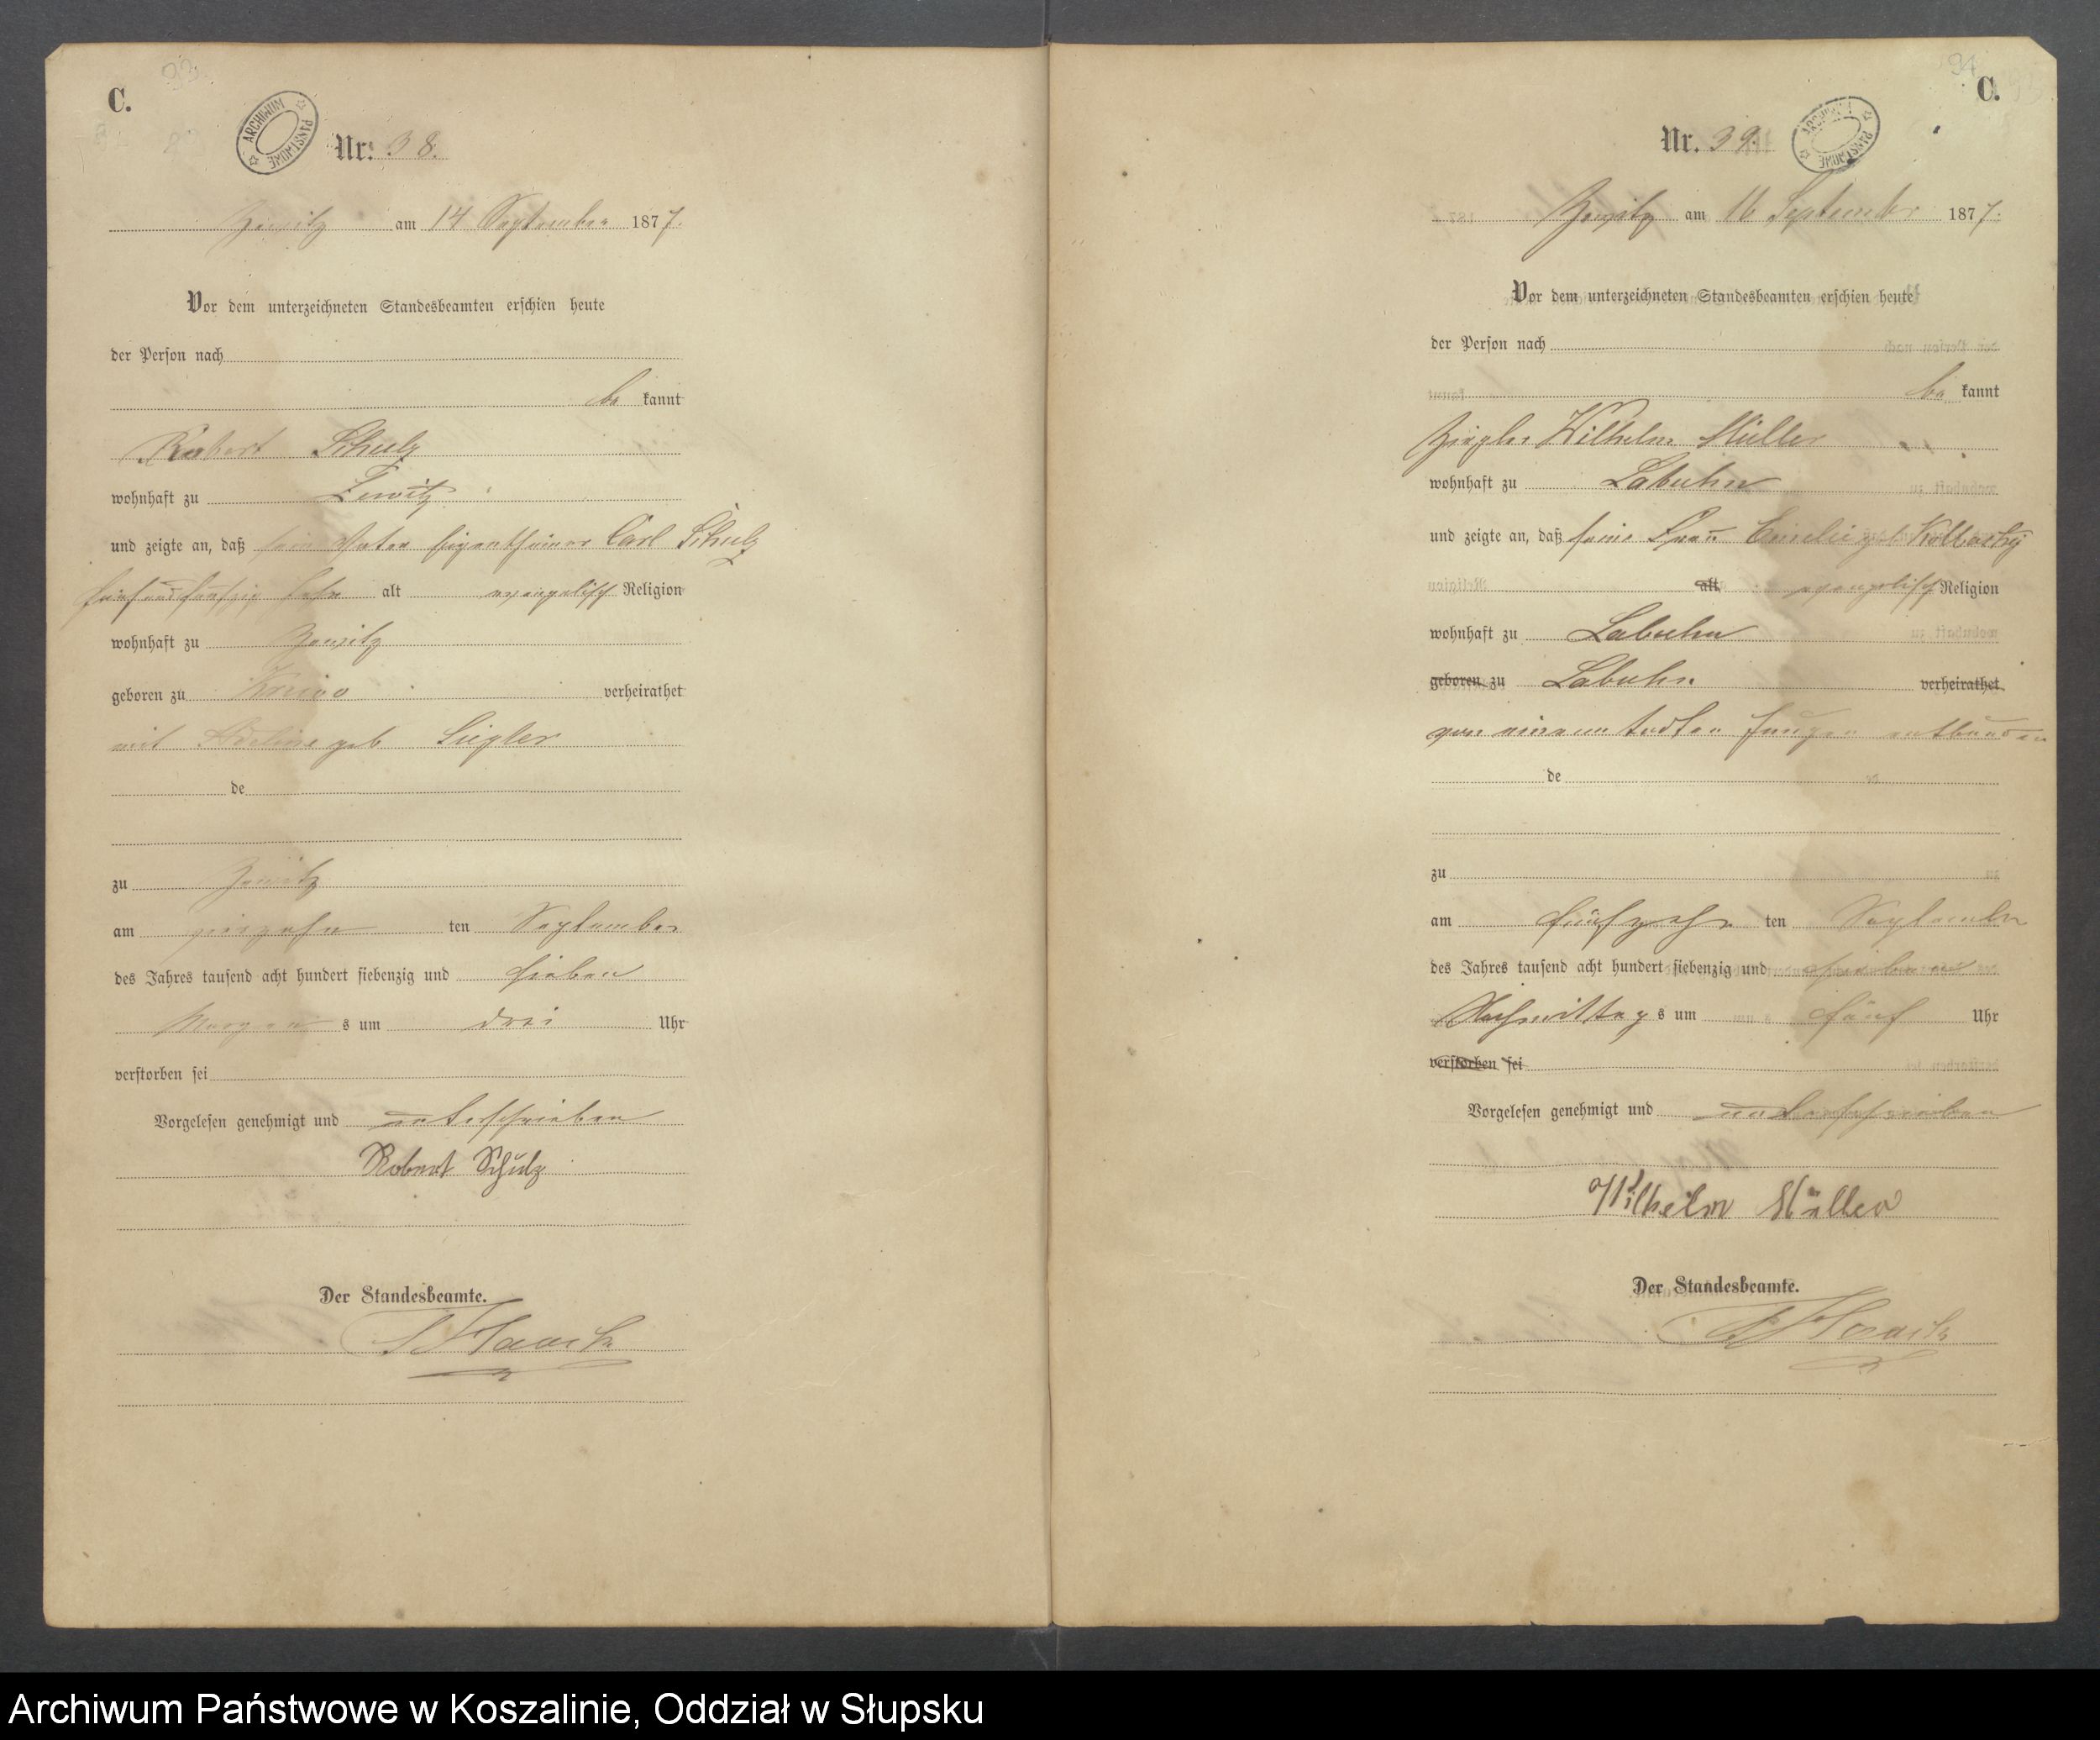 C.
ARCHIWUM PAŃSTWOWE
Nr. 38.
Zewitz am 14 September 1877.
Vor dem unterzeichneten Standesbeamten erschien heute
der Person nach
be kannt
Robert Schulz
wohnhaft zu Zewitz
und zeigte an, daß sein Vater Eigenthümer Carl Schulz
fünfundfünfzig Jahr alt evangelisch Religion
wohnhaft zu Zewitz
geboren zu verheirathet
mit geb Ziegler
de
zu Zewitz
am vierzehn ten September
des Jahres tausend acht hundert siebenzig und sieben
Morgen s um drei Uhr
verstorben sei
Vorgelesen genehmigt und unterschrieben
Robert Schulz
Der Standesbeamte.
94
C.
ARCHIWUM PAŃSTWOWE
Nr. 39.
Zewitz am 16 September 1877.
Vor dem unterzeichneten Standesbeamten erschien heute
der Person nach
be kannt
Ziegler Wilhelm Müller
wohnhaft zu Labuhn
und zeigte an, daß seine Frau Emilie geb
alt evangelisch Religion
wohnhaft zu Labuhn
geboren zu Labuhn verheirathet
von einem todten Jungen entbunden
de
zu
am fünfzehn ten September
des Jahres tausend acht hundert siebenzig und sieben
Nachmittag s um fünf Uhr
verstorben sei
Vorgelesen genehmigt und unterschrieben
Wilhelm Müller
Der Standesbeamte.
Archiwum Państwowe w Koszalinie, Oddział w Słupsku